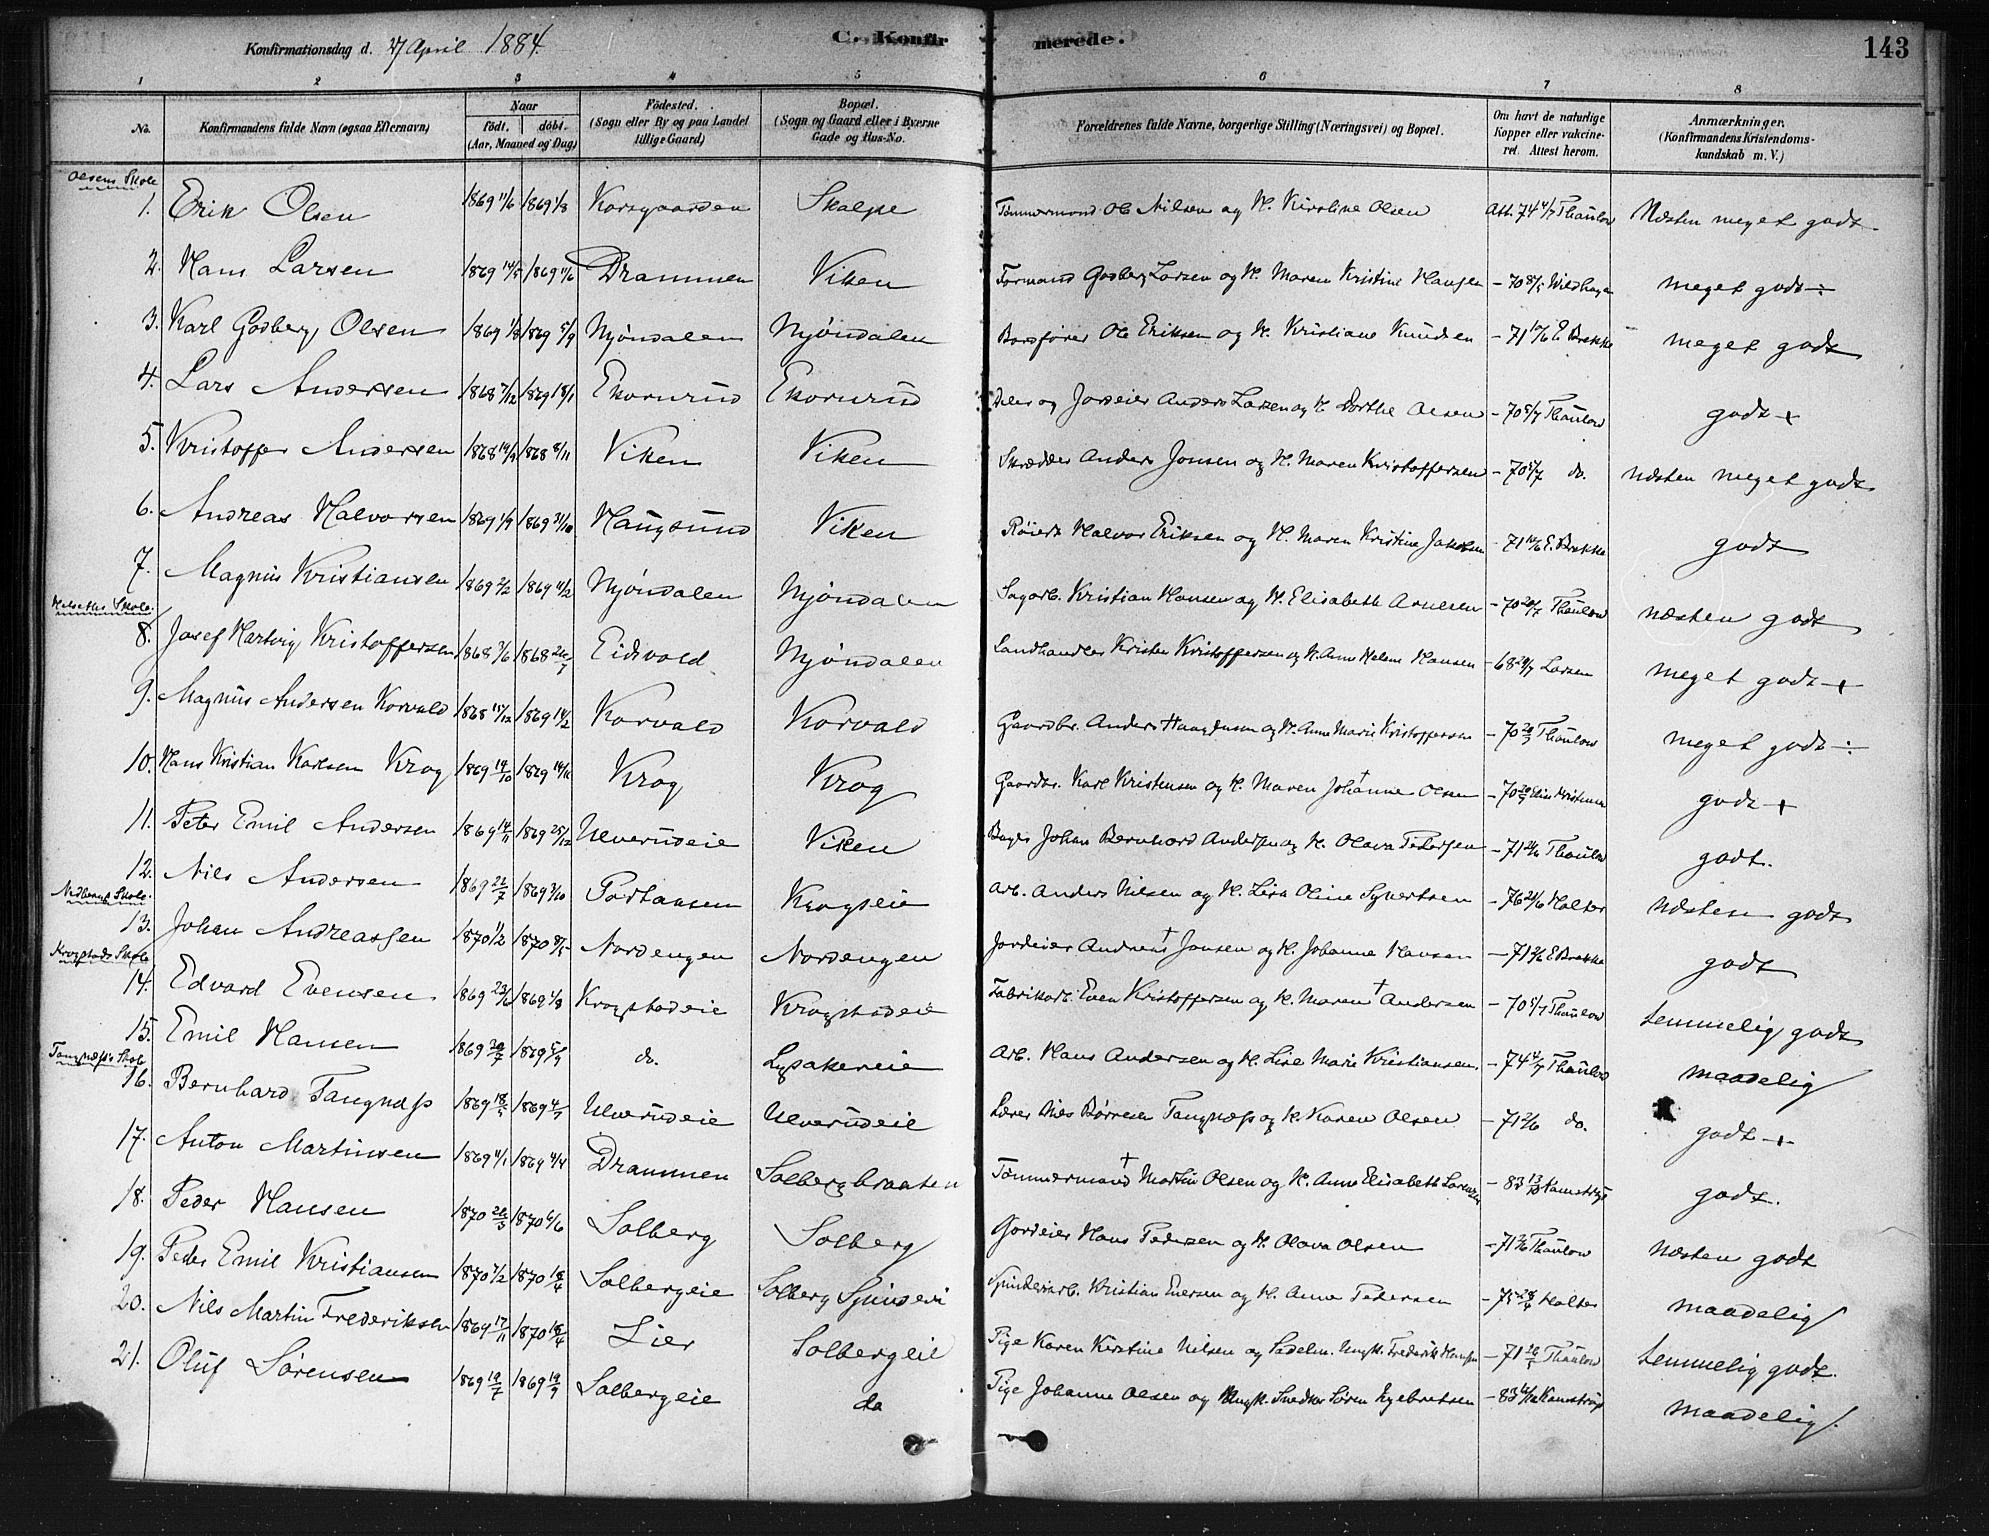 Konfirmationsdag d. 27 April 1884. C. Konfirmerede. 143
1 2 3 4 5 6 7 8
No. Konfirmandens fulde Navn (ogsaa Efternavn) Naar født. døbt. (Aar, Maaned og Dag) Fødested. (Sogn eller By og paa Landet tillige Gaard) Bopæl. (Sogn og Gaard eller i Byerne Gade og Hus-No. Forældrenes fulde Navne, borgerlige Stilling (Næringsvei) og Bopæl. Om havt de naturlige Kopper eller vakcineret. Attest herom. Anmærkninger. (Konfirmandens Kristendomskundskab m. V.)
Olsens Skole
1. Erik Olsen 1869 11/6 1869 1/8 Korsgaarden Skalpe Tømmermand Ole Nilsen og H. Kirstine Olsen Att. 74 4/7 Thaulow Næsten meget godt
2. Hans Larsen 1869 14/5 1869 11/6 Drammen Viken Formand Godberg Larsen og H. Maren Kristine Hansen – 70 8/5 Wildhagen meget godt ÷
3. Karl Godberg Olsen 1869 1/8 1869 5/9 Mjøndalen Mjøndalen Baadfører Ole Eriksen og H. Kristiane Knudsen – 71 10/6 E Brekke meget godt
4. Lars Andersen 1868 7/12 1869 18/1 Ekornrud Ekornrud og Jordeier Anders Larsen og H. Dorthe Olsen – 70 5/7 Thaulow godt +
5. Kristoffer Andersen 1868 19/9 1868 8/11 Viken Viken Skrædder Anders Jonsen og H. Maren Kristoffersen – 70 5/7 do. næsten meget godt
6. Andreas Halvorsen 1869 1/9 1869 31/10 Haugsund Viken Røiert Halvor Eriksen og H. Maren Kristine Jakobsen – 71 10/6 E. Brekke godt
7. Magnus Kristiansen 1869 2/2 1869 11/2 Mjøndalen Mjøndalen Sagarb. Kristian Hansen og H. Elisabeth Arnesen – 70 20/7 Thaulow næsten godt
Helseths Skole
8. Josef Hartvig Kristoffersen 1868 3/6 1868 26/7 Eidsvold Mjøndalen Landhandler Kristen Kristoffersen og H. Anne Helene Hansen – 68 20/7 Larsen meget godt +
9. Magnus Andersen Korvald 1868 15/12 1869 14/2 Korvald Korvald Gaardbr. Anders Haagensen og H. Anne Marie Kristoffersen – 70 20/3 Thaulow meget godt ÷
10. Hans Kristian Karlsen Krog 1869 19/10 1869 14/11 Krog Krog Gaardbr. Karl Kristensen og H. Maren Johanne † Olsen – 70 20/9 godt +
11. Peter Emil Andersen 1869 14/11 1869 25/12 Ulverudeie Viken Bager Johan Bernhard Andersen og H. Olava Pedersen – 71 Thaulow godt.
12. Nils Andersen 1869 22/7 1869 3/10 Portaasen Krogseie Arb. Anders Nilsen og H. Lisa Oline Syvertsen – 76 21/6 Holter næsten godt
Nedbergs Skole
13. Johan Andreassen 1870 1/2 1870 8/5 Nordengen Nordengen Jordeier Andreas † Jonsen og H. Johanne Hansen – 71 2/6 E Brekke godt
Krogstads Skole
14. Edvard Evensen 1869 23/6 1869 1/8 Krogstadeie Krogstadeie Fabrikarb. Even Kristoffersen og H. Maren † Andersen – 70 5/7 Thaulow temmelig godt
15. Emil Hansen 1869 20/7 1869 5/9 do. Lysakereie Arb. Hans Andersen og H. Lise Marie Kristiansen – 74 4/7 Thaulow maadelig
Tangnæs's Skole
16. Bernhard Tangnæss 1869 18/5 1869 4/7 Ulverudeie Ulverudeie Lærer Nils Børresen Tangnæss og H. Karen Olsen – 71 2/6 do. godt +
17. Anton Martinsen 1869 11/1 1869 4/4 Drammen Solbergbraaten Tømmermand † Martin Olsen og H. Anne Elisabeth Lorenzen – 83 13/10 Kamstrup godt.
18. Peder Hansen 1870 26/3 1870 6/6 Solberg Solberg Jordeier Hans Pedersen og H. Olava Olsen – 71 2/6 Thaulow næsten godt
19. Peder Emil Kristiansen 1870 7/2 1870 18/4 Solbergeie Solberg Spinderi Spinderiarb. Kristian Enersen og H. Anne Pedersen – 75 28/4 Holter maadelig
20. Nils Martin Frederiksen 1869 17/11 1870 18/4 Lier Solbergeie Pige Karen Kirstine Nilsen og Sadelm. Ungk. Frederik Hansen – 71 26/5 Thaulow temmelig godt.
21. Oluf Sørensen 1869 19/7 1869 19/9 Solbergeie do Pige Johanne Olsen og Ungk. Snedker Søren Ingebretsen – 83 Kamstrup maadelig.